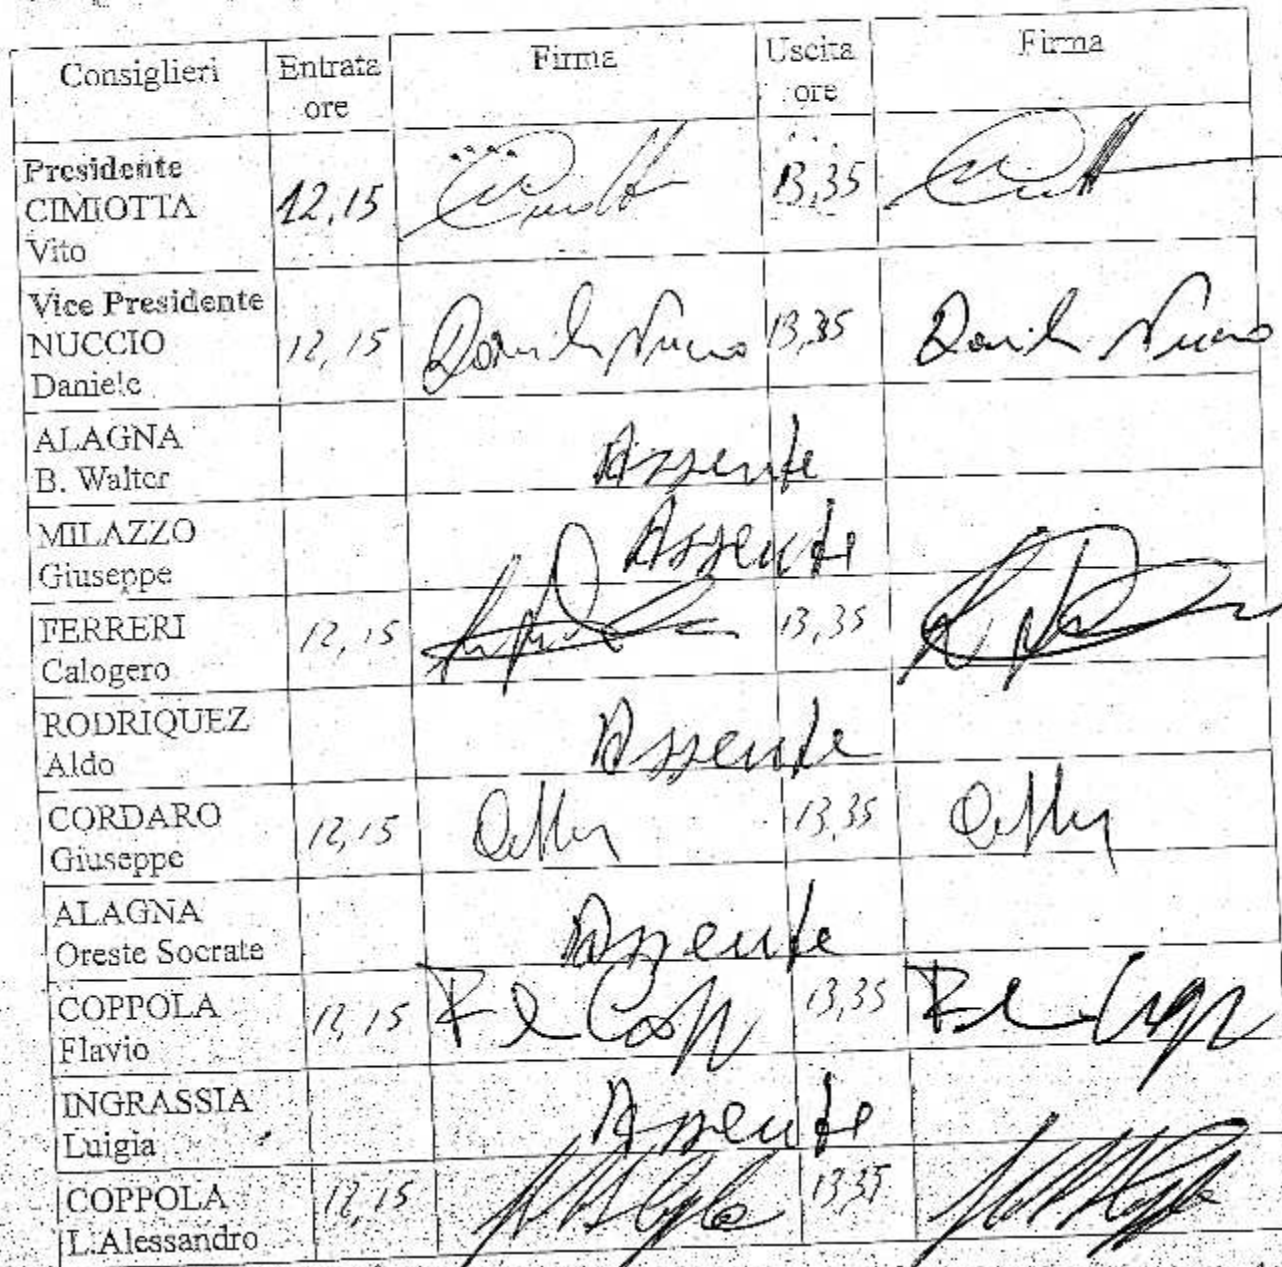 Consiglieri Entrata ore Firma Uscita ore Firma
Presidente
CIMIOTTA
Vito
12,15 13,35
Vice Presidente
NUCCIO
Daniele
12,15 13,35
ALAGNA
B. Walter
Assente
MILAZZO
Giuseppe
Assente
FERRERI
Calogero
12,15 13,35
RODRIQUEZ
Aldo
Assente
CORDARO
Giuseppe
12,15 13,35
ALAGNA
Oreste Socrate
Assente
COPPOLA
Flavio
12,15 13,35
INGRASSIA
Luigia
Assente
COPPOLA
L.Alessandro
12,15 1335